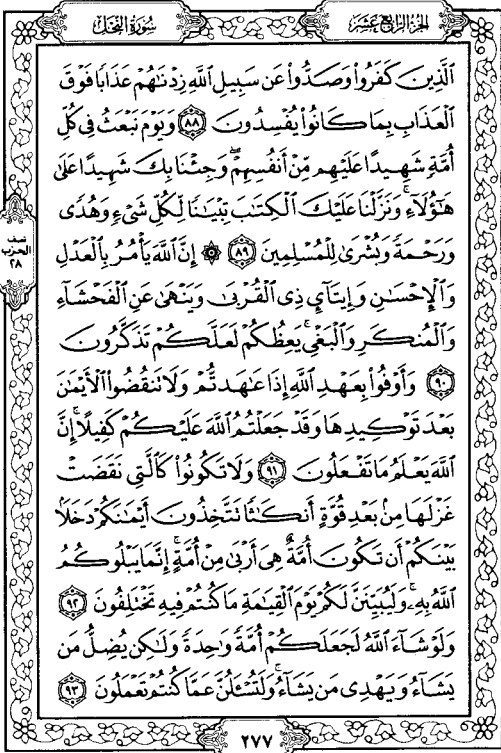 سُورَةُ النَّحْلِ
الجُزْءُ الرَّابِعَ عَشَرَ
الَّذِينَ كَفَرُوا۟ وَصَدُّوا۟ عَن سَبِيلِ اللَّهِ زِدْنَـٰهُمْ عَذَابًا فَوْقَ
الْعَذَابِ بِمَا كَانُوا۟ يُفْسِدُونَ ٨٨ وَيَوْمَ نَبْعَثُ فِى كُلِّ
أُمَّةٍ شَهِيدًا عَلَيْهِم مِّنْ أَنفُسِهِمْ ۖ وَجِئْنَا بِكَ شَهِيدًا عَلَىٰ
هَـٰٓؤُلَآءِ ۚ وَنَزَّلْنَا عَلَيْكَ الْكِتَـٰبَ تِبْيَـٰنًا لِّكُلِّ شَىْءٍ وَهُدًى
وَرَحْمَةً وَبُشْرَىٰ لِلْمُسْلِمِينَ ٨٩ ۞ إِنَّ اللَّهَ يَأْمُرُ بِالْعَدْلِ
وَالْإِحْسَـٰنِ وَإِيتَآئِ ذِى الْقُرْبَىٰ وَيَنْهَىٰ عَنِ الْفَحْشَآءِ
وَالْمُنكَرِ وَالْبَغْىِ ۚ يَعِظُكُمْ لَعَلَّكُمْ تَذَكَّرُونَ
٩٠ وَأَوْفُوا۟ بِعَهْدِ اللَّهِ إِذَا عَـٰهَدتُّمْ وَلَا تَنقُضُوا۟ الْأَيْمَـٰنَ
بَعْدَ تَوْكِيدِهَا وَقَدْ جَعَلْتُمُ اللَّهَ عَلَيْكُمْ كَفِيلًا ۚ إِنَّ
اللَّهَ يَعْلَمُ مَا تَفْعَلُونَ ٩١ وَلَا تَكُونُوا۟ كَالَّتِى نَقَضَتْ
غَزْلَهَا مِنۢ بَعْدِ قُوَّةٍ أَنكَـٰثًا تَتَّخِذُونَ أَيْمَـٰنَكُمْ دَخَلًۢا
بَيْنَكُمْ أَن تَكُونَ أُمَّةٌ هِىَ أَرْبَىٰ مِنْ أُمَّةٍ ۚ إِنَّمَا يَبْلُوكُمُ
اللَّهُ بِهِۦ ۚ وَلَيُبَيِّنَنَّ لَكُمْ يَوْمَ الْقِيَـٰمَةِ مَا كُنتُمْ فِيهِ تَخْتَلِفُونَ ٩٢
وَلَوْ شَآءَ اللَّهُ لَجَعَلَكُمْ أُمَّةً وَٰحِدَةً وَلَـٰكِن يُضِلُّ مَن
يَشَآءُ وَيَهْدِى مَن يَشَآءُ ۚ وَلَتُسْـَٔلُنَّ عَمَّا كُنتُمْ تَعْمَلُونَ ٩٣
نصف
الحزب
٢٨
٢٧٧